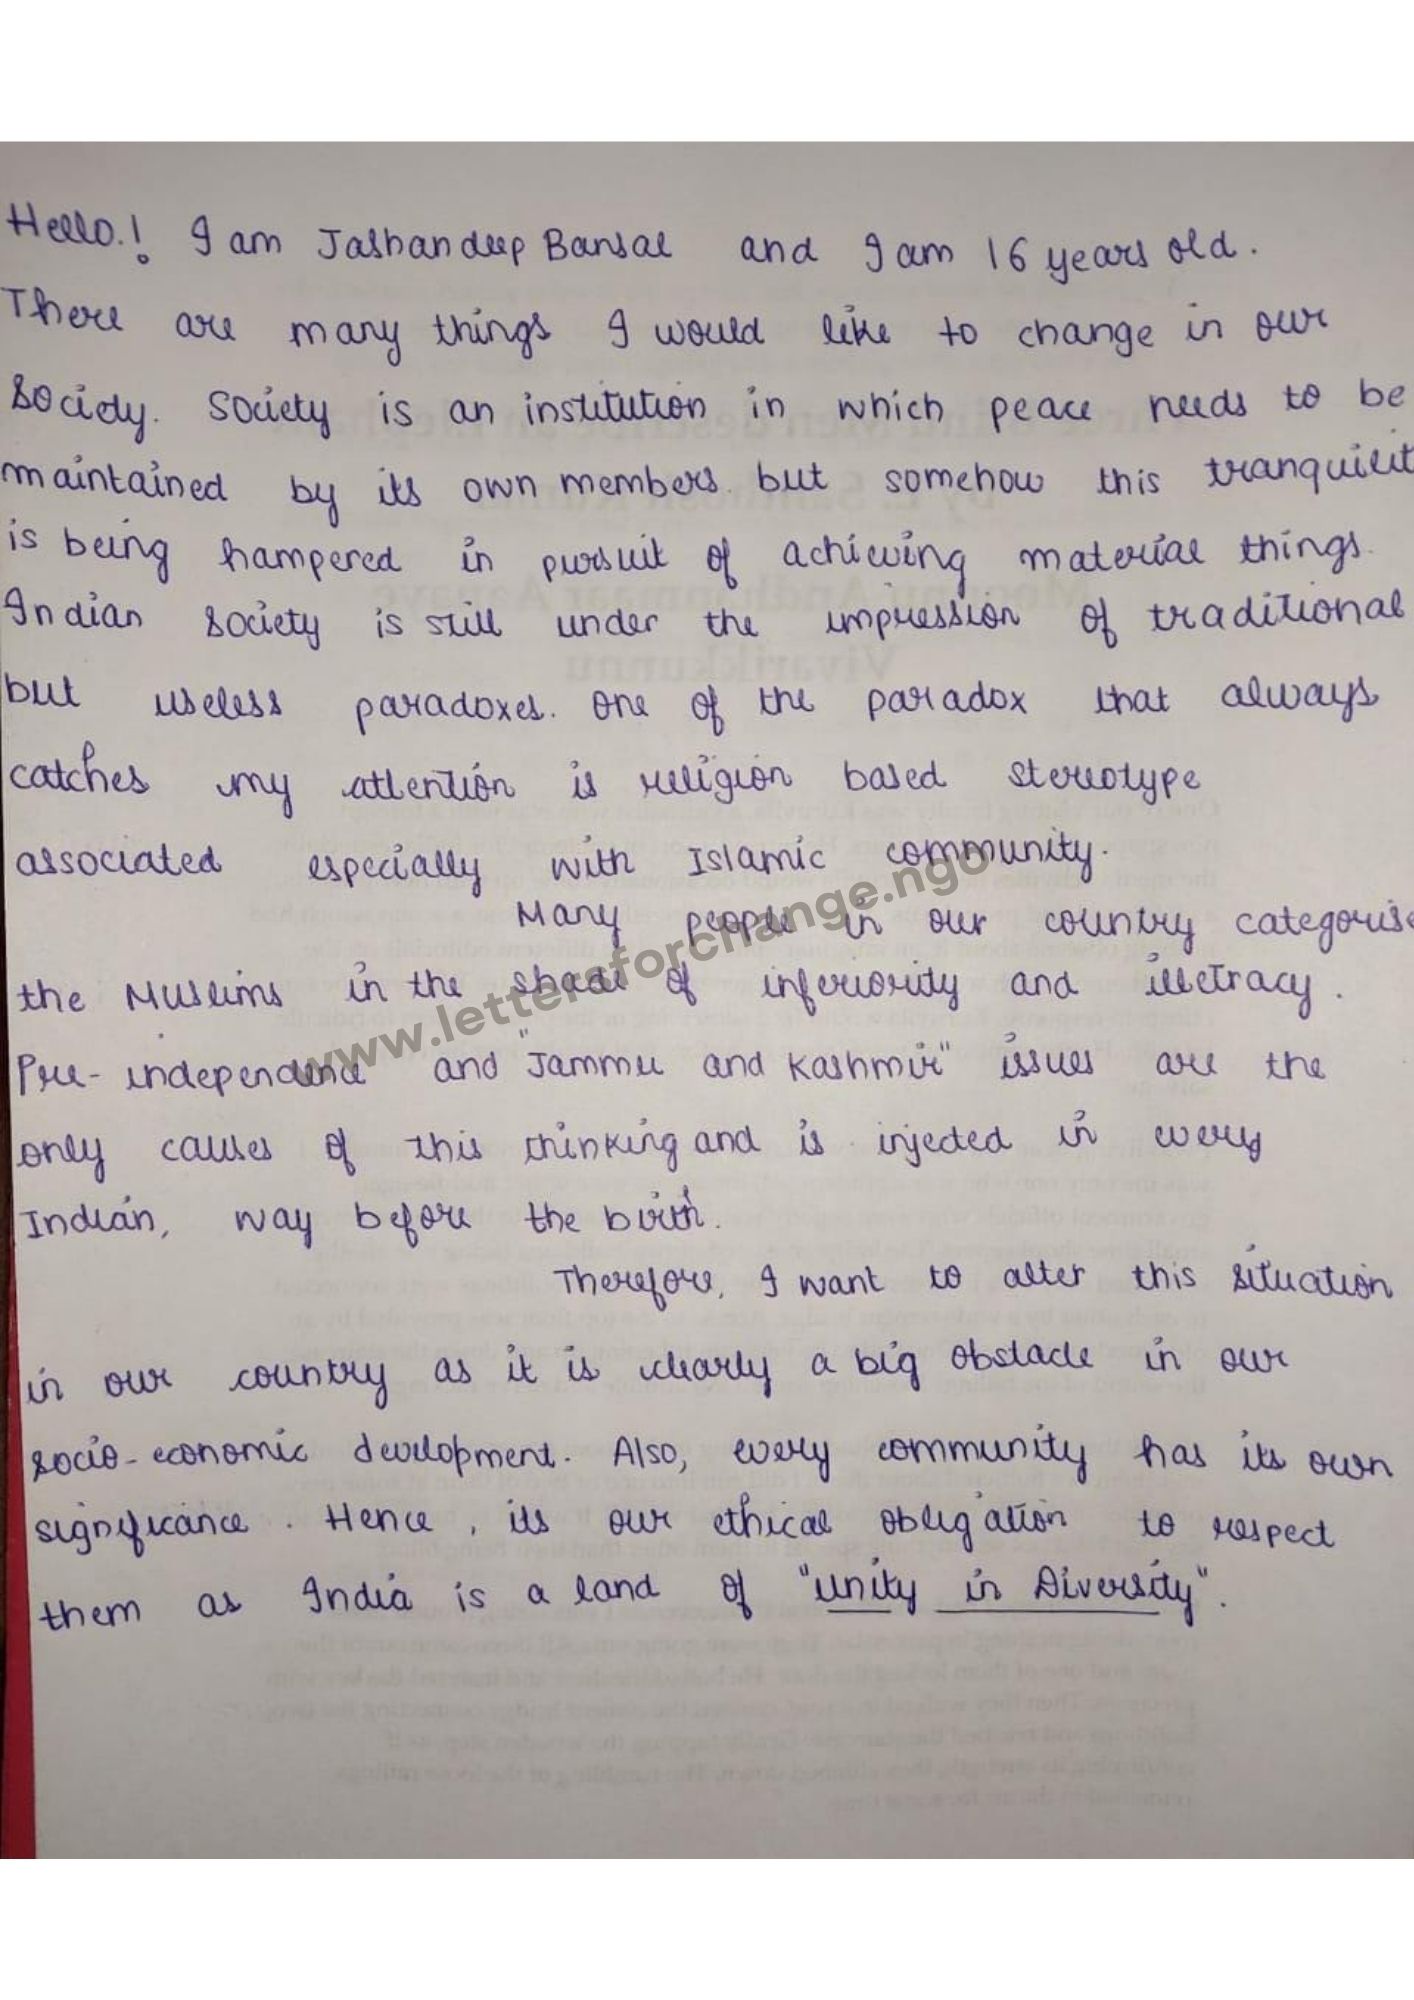 Hello.! I am Jashandeep Bansal and I am 16 years old.
There are many things I would like to change in our
society. Society is an institution in which peace needs to be
maintained by its own members. but somehow this tranquilit
is being hampered in pursuit of achieving material things.
Indian society is still under the impression of traditional
but useless paradoxes. One of the paradox that always
catches my attention is religion based stereotype
associated especially with Islamic community.
Many people in our country categoris
the Muslims in the shade of inferiority and illetracy.
Pre-independence and "Jammu and Kashmir" issues are the
only causes of this thinking and is injected in every
Indian, way before the birth.
Therefore, I want to alter this situation
in our country as it is clearly a big obstacle in our
socio-economic development. Also, every community has its own
significance. Hence, its our ethical obligation to respect
them as India is a land of "Unity in Diversity".
www.lettersforchange.ngo